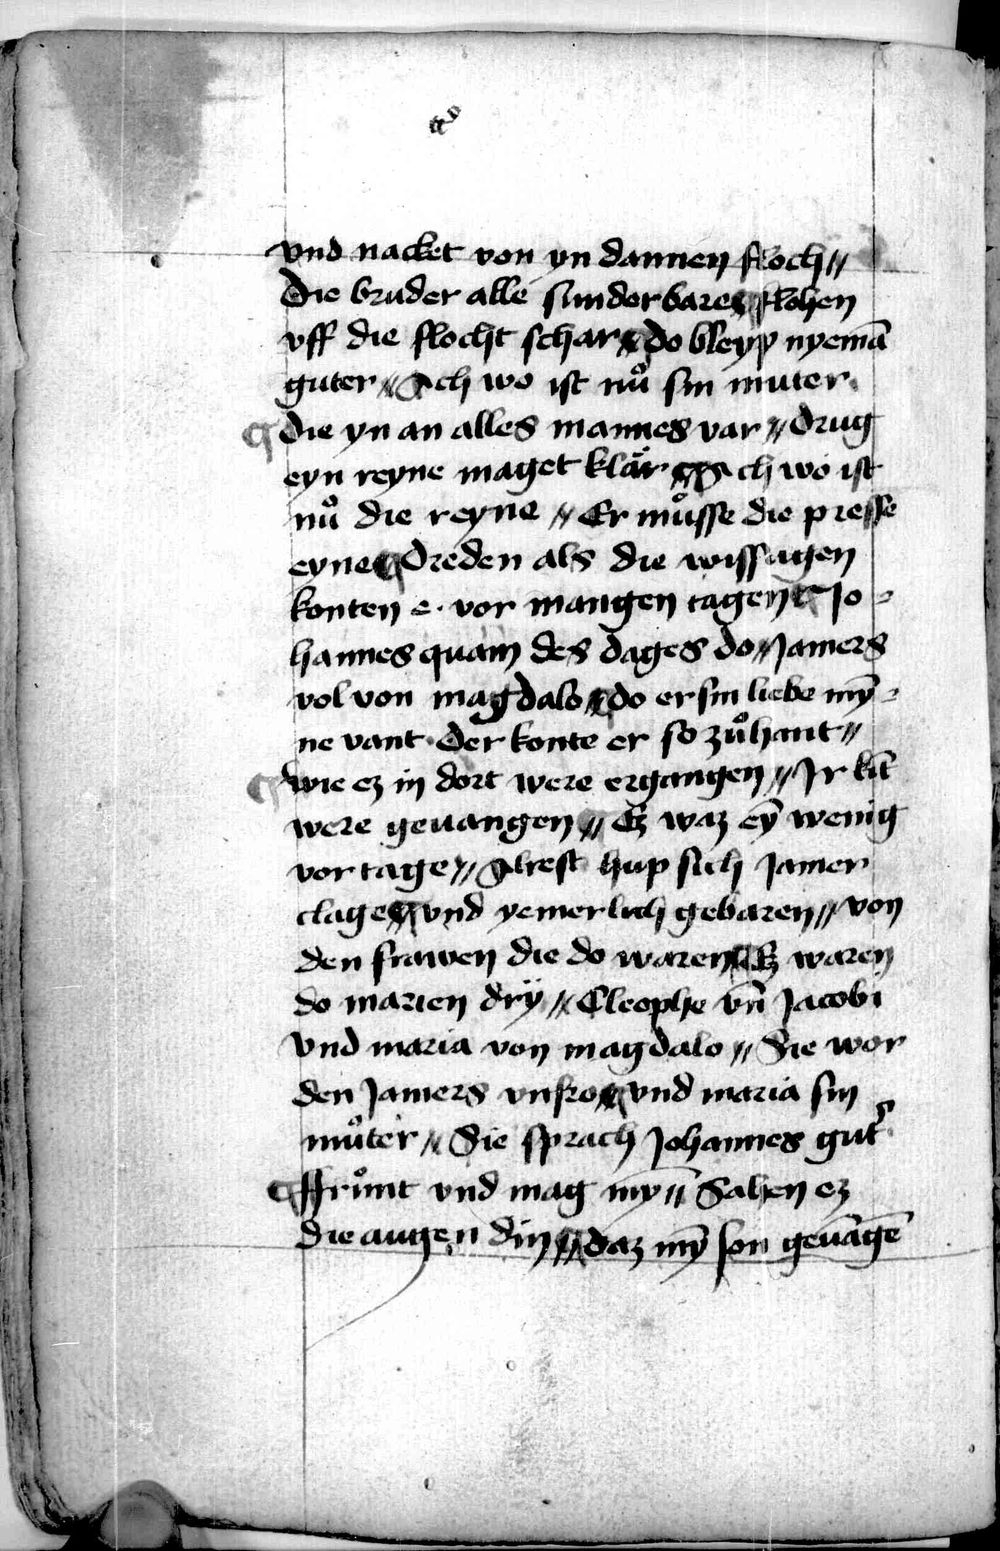 vnd nacket von yn dannen floch //
Die bruder alle sunderbare // flohen
vff die flocht schar // do bleyp nyemā
guter // Ach wo ist nuͦ sin muter.
die yn an alles mannes var // drug
eyn reyne maget klar // Ach wo ist
nuͦ die reyne // Er muͦsse die presse
eyne // Dreden als die wissagen
konten e. vor mangen tagen // Jo-
hannes quam des dages do // Jamers
vol von magdalo // do er sin liebe mȳ-
ne vant. Der konte er so zuͦhant //
wie ez in dort were ergangen // Ir kīt
were geuangen // Ez waz eȳ wenig
vor tage // Alrest hup sich Jamer
clage // vnd yemerlich gebaren // von
den frawen die do waren // Ez waren
do marien drÿ // Cleophe vn̄ Jacobi
Vnd maria von magdalo // Sie wor
den Jamers vnfro // vnd maria sin
muͦter // Sie sprach Johannes gut͛
ffruͦnt vnd mag mȳ // Sahen ez
die augen din // daz mȳ son geuāgē